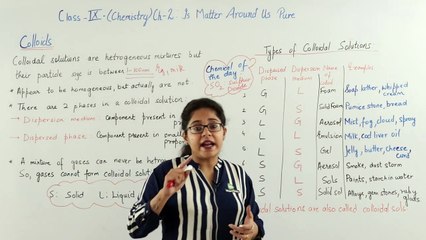 Class-IX-(Chemistry)Ch-2: Is Matter Around Us Pure
Colloids
Colloidal solutions are hetrogeneous mixtures but
their particle size is between
• Appear to be homogeneous, but actually are not
• There are 2 phases in a colloidal solution
→ Dispersion medium: Component present in
→ Dispersed phase: Component present in small
proportion
• A mixture of gases can never be
So, gases cannot form colloidal
S: Solid L: Liquid,
Chemical of
the day
SO₂ Sulphur
Dioxide
Types of Colloidal Solutions
Dispersed phase Dispersion medium Name of Examples
G L Foam Soap lather, whipped cream
G S Solid Foam Pumice stone, bread
L G Aerosol Mist, fog, cloud, spray
L L Emulsion Milk, cod liver oil
L S Gel Jelly, butter, cheese, curd
S G Aerosol Smoke, dust storm
S L Sols Paints, starch in water
S S Solid sol Alloys, gem stones, ruby glass
solutions are also called colloidal sols